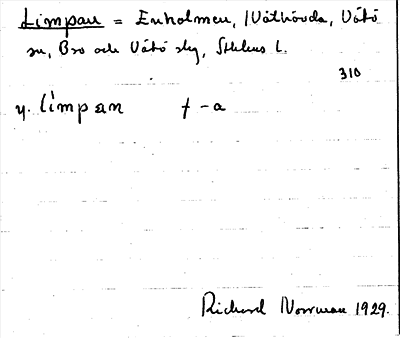 Limpan = Enholmen, /Väthövda, Vätö
sn, Bro och Vätö skg, Sthlms l.
310
y. limpan f -a
Richard Norrman 1929.